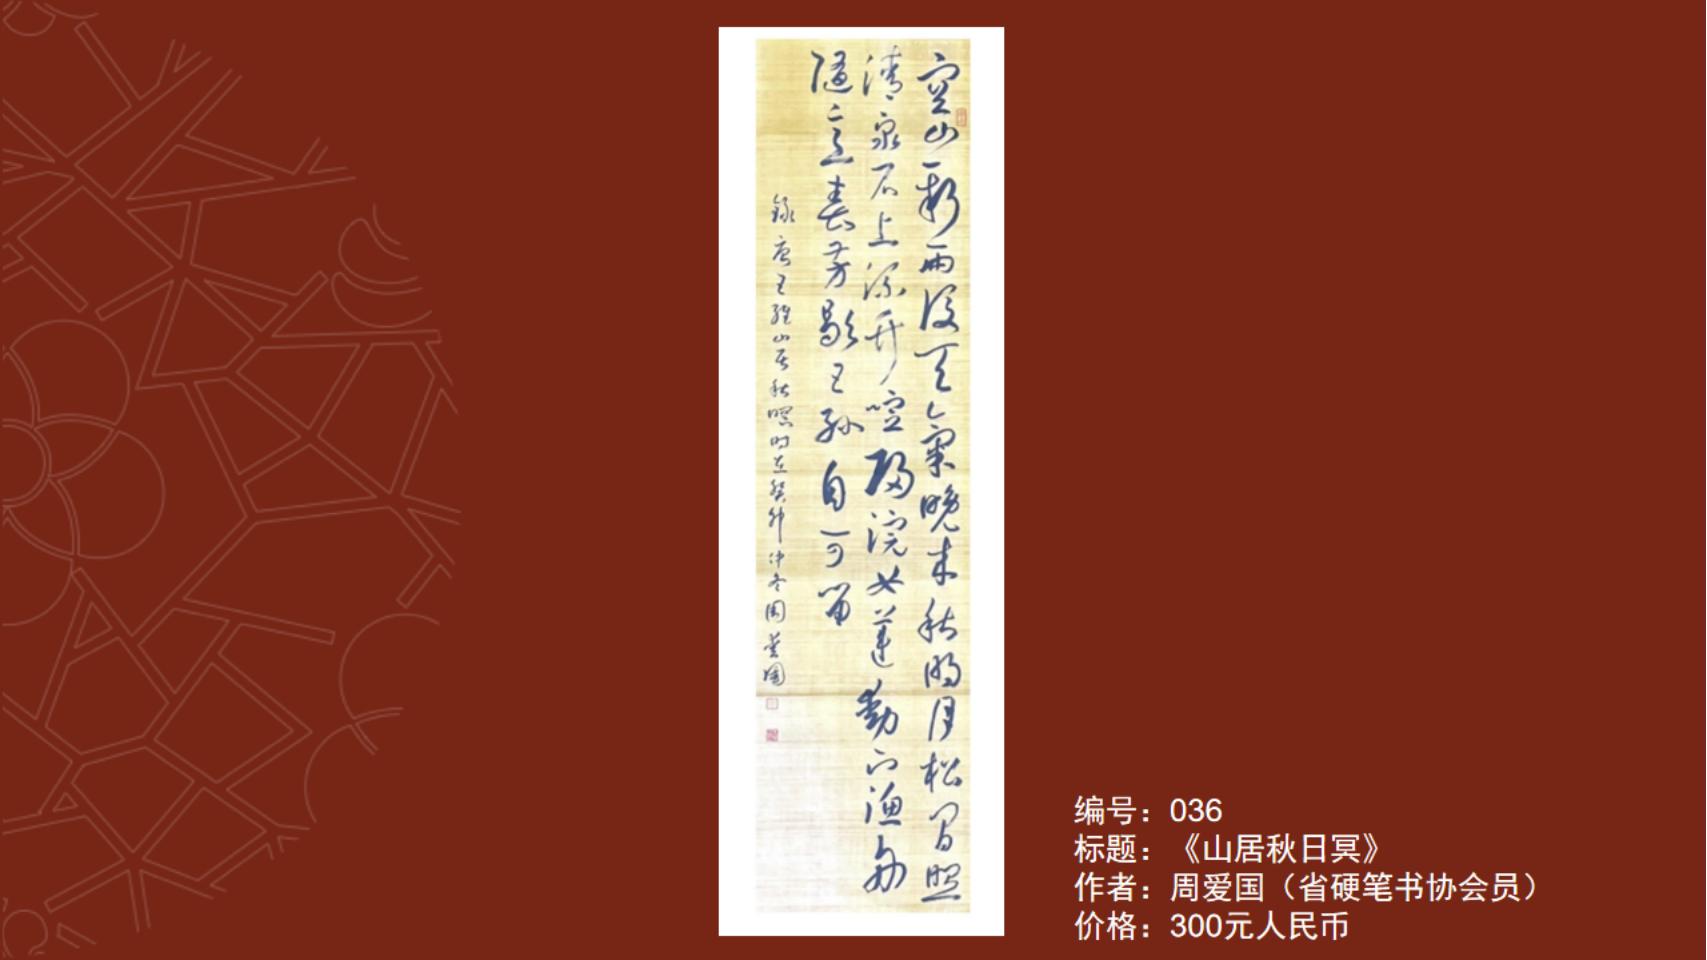 空山新雨後天氣晚来秋明月松間照
清泉石上流竹喧歸浣女蓮動下漁舟
隨意春芳歇王孫自可留
録唐王維山居秋暝時在癸卯仲冬周愛國
编号：036
标题：《山居秋日冥》
作者：周爱国（省硬笔书协会员）
价格：300元人民币